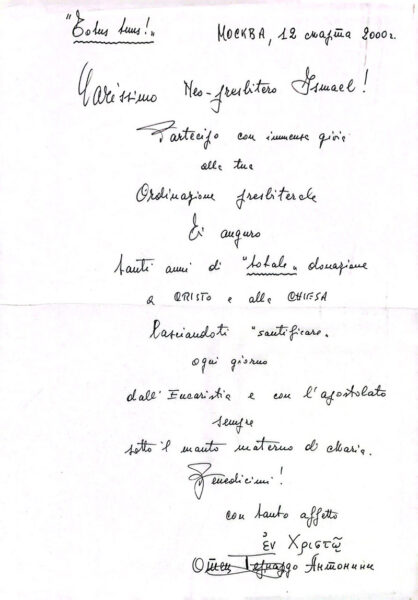 "Totus tuus!" Москва, 12 марта 2000 г.
Carissimo Neo-presbitero Ismael!
Partecipo con immensa gioia
alla tua
Ordinazione presbiterale
Ti auguro
tanti anni di "totale" donazione
a CRISTO e alla CHIESA
lasciandoti "santificare"
ogni giorno
dall'Eucaristia e con l'apostolato
sempre
sotto il manto materno di Maria.
Benedicimi!
con tanto affetto
ἐν Χριστῷ
Отец Бернардо Антонини